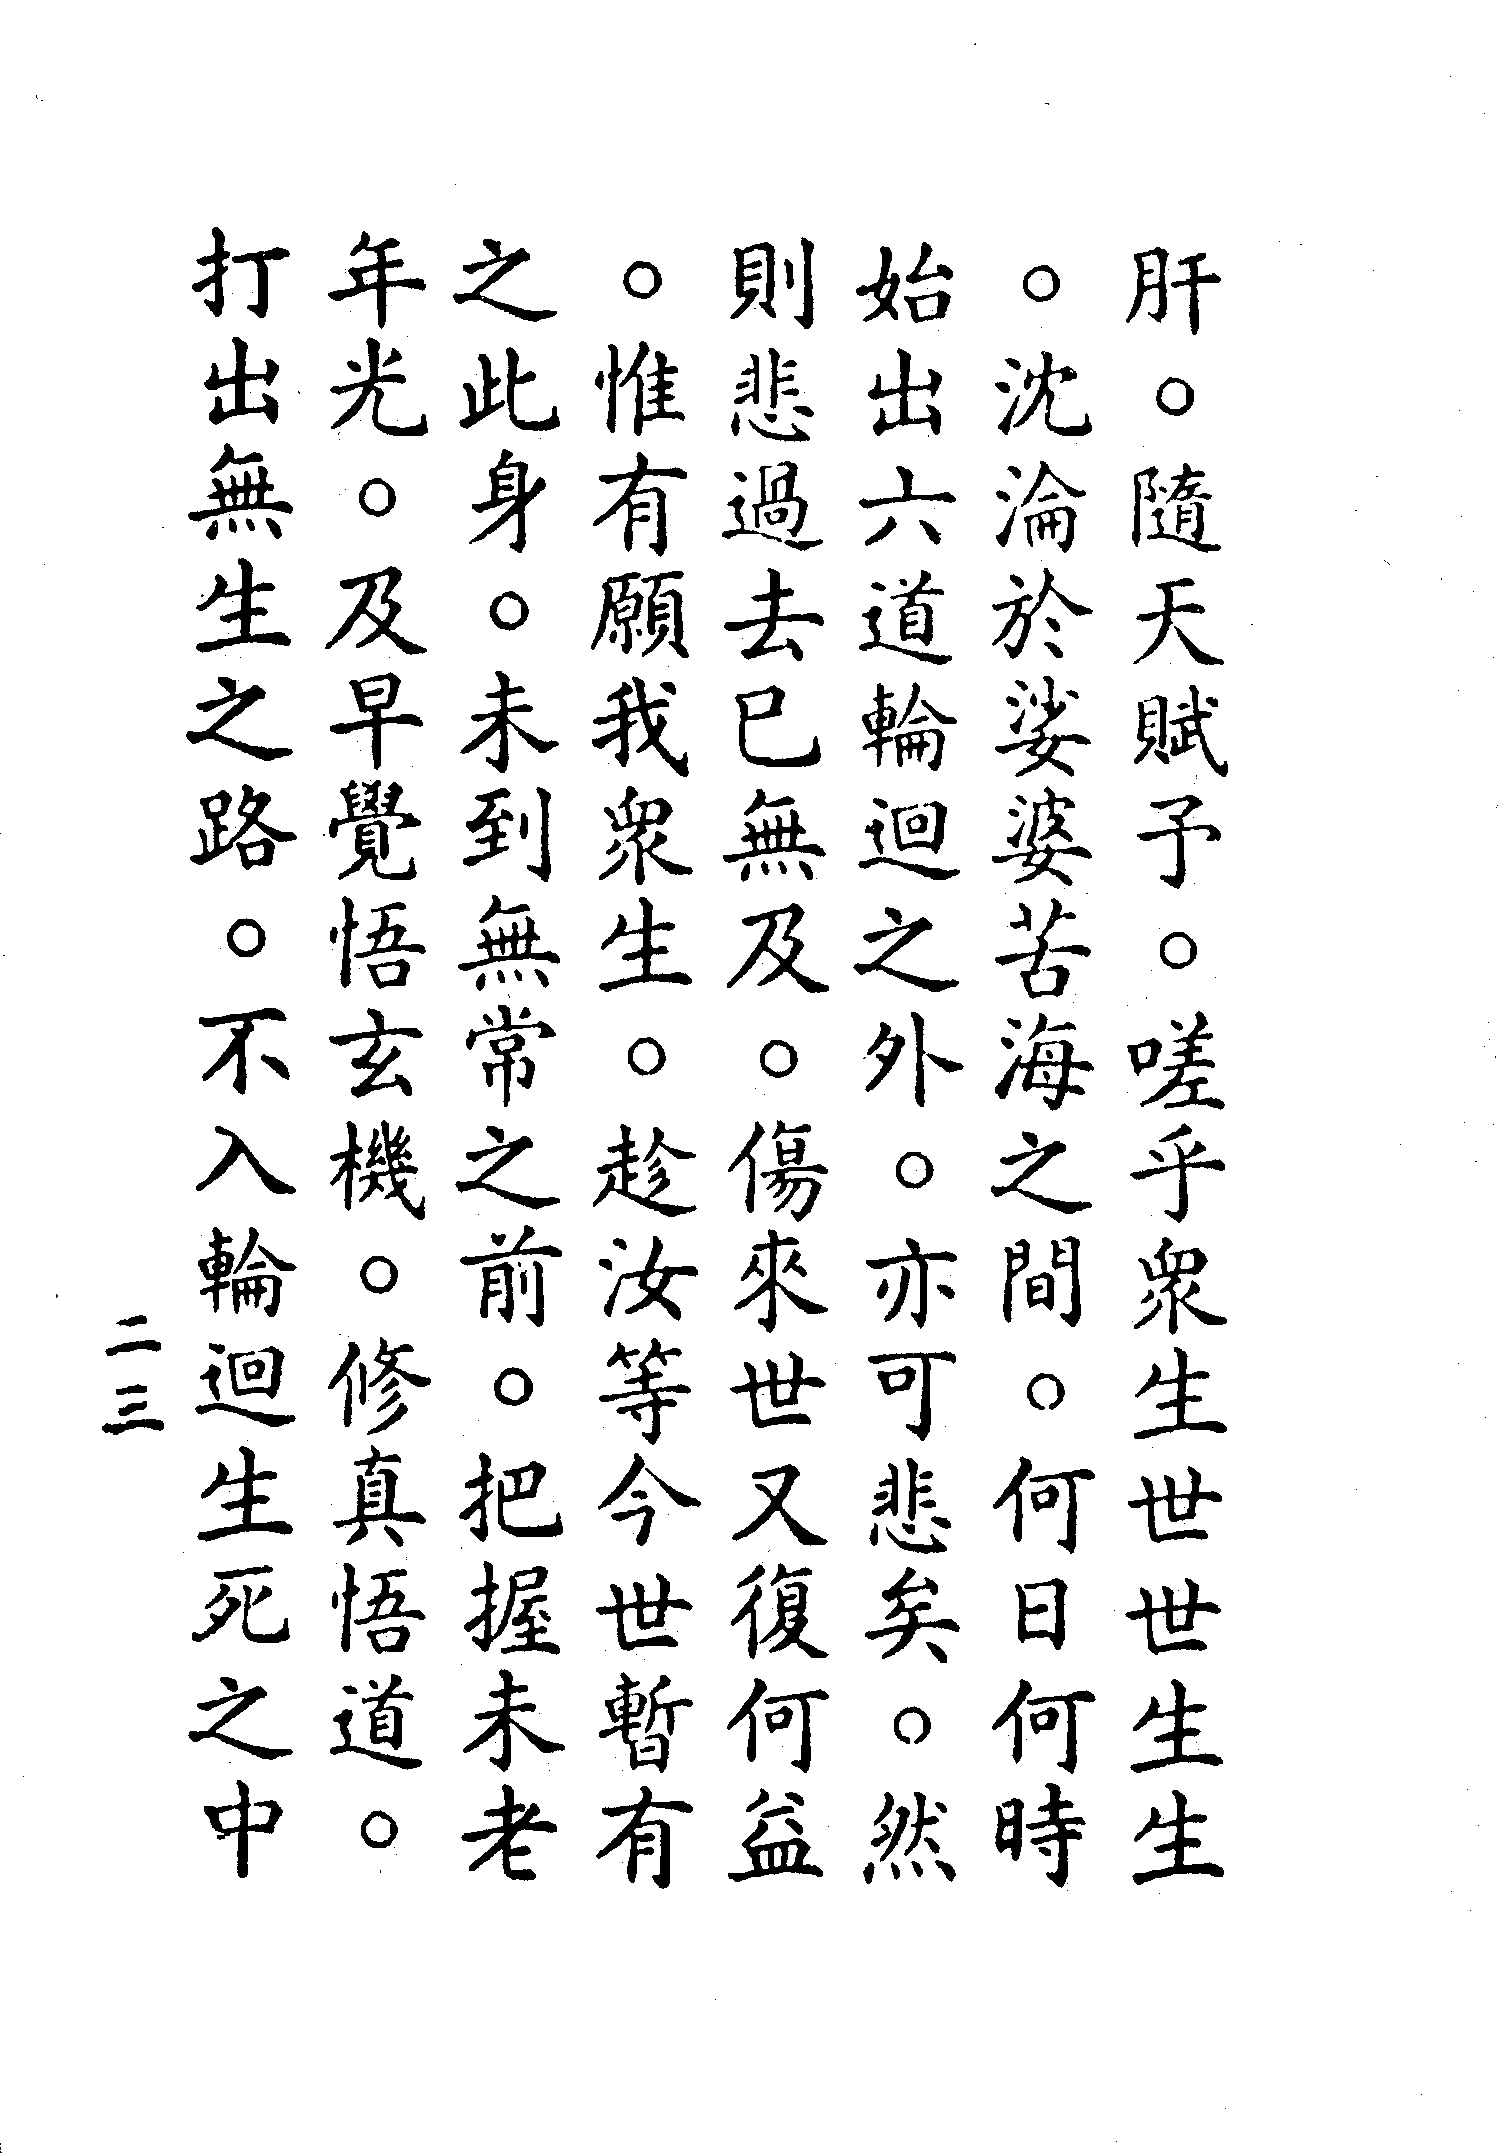 肝。隨天賦予。嗟乎衆生世世生生
。沈淪於娑婆苦海之間。何日何時
始出六道輪迴之外。亦可悲矣。然
則悲過去已無及。傷來世又復何益
。惟有願我衆生。趁汝等今世暫有
之此身。未到無常之前。把握未老
年光。及早覺悟玄機。修真悟道。
打出無生之路。不入輪迴生死之中
二三